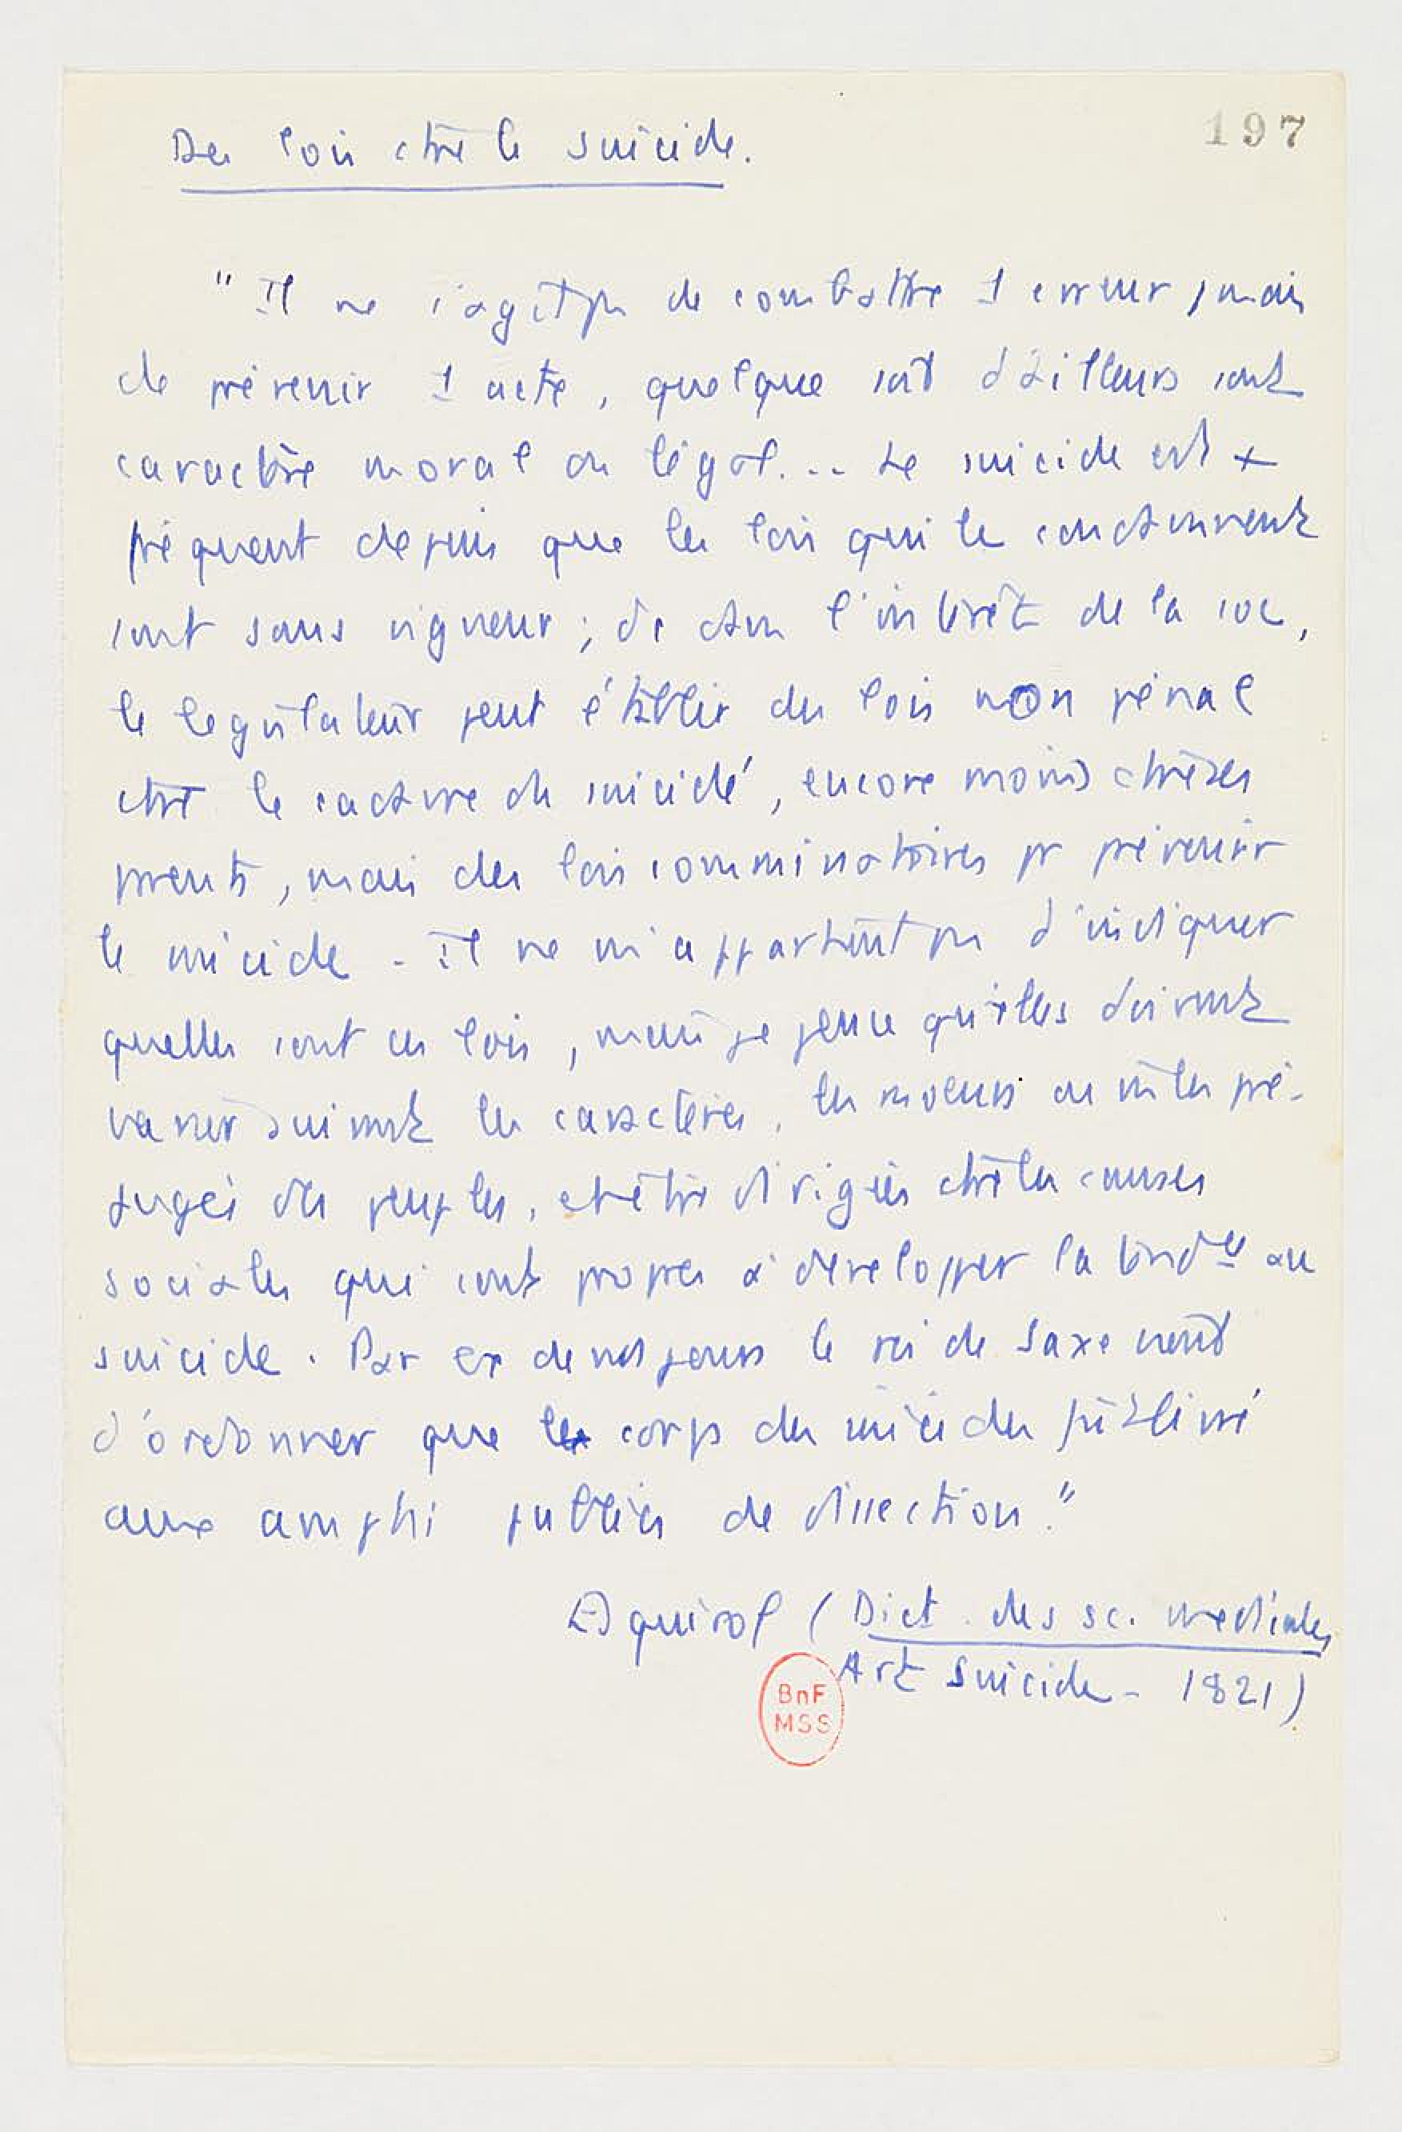 197
Des lois ctre le suicide.
"Il ne s'agit pas de combattre 1 erreur, mais
de prévenir 1 acte, quelque soit d'ailleurs sont
caractère moral ou légal... Le suicide est +
fréquent depuis que les lois qui le condamnent
sont sans vigueur ; dc dans l'intérêt de la soc,
le legislateur peut établir des lois non pénal
ctre le cadavre du suicidé, encore moins ctre ses
parents, mais des lois comminatoires pr prévenir
le suicide. Il ne m'appartient pas d'indiquer
quelles sont ces lois, mais je pense qu'elles doivent
varier suivant les caractères, les moeurs ou m les pré-
jugés des peuples, et être dirigées ctre les causes
sociales qui sont propres à développer la tendce au
suicide. Par ex de nos jours le roi de Saxe vient
d'ordonner que le corps des suicides fût livré
aux amphi publics de dissection."
Esquirol (Dict. des sc. medicales
Art Suicide - 1821)
BnF
MSS